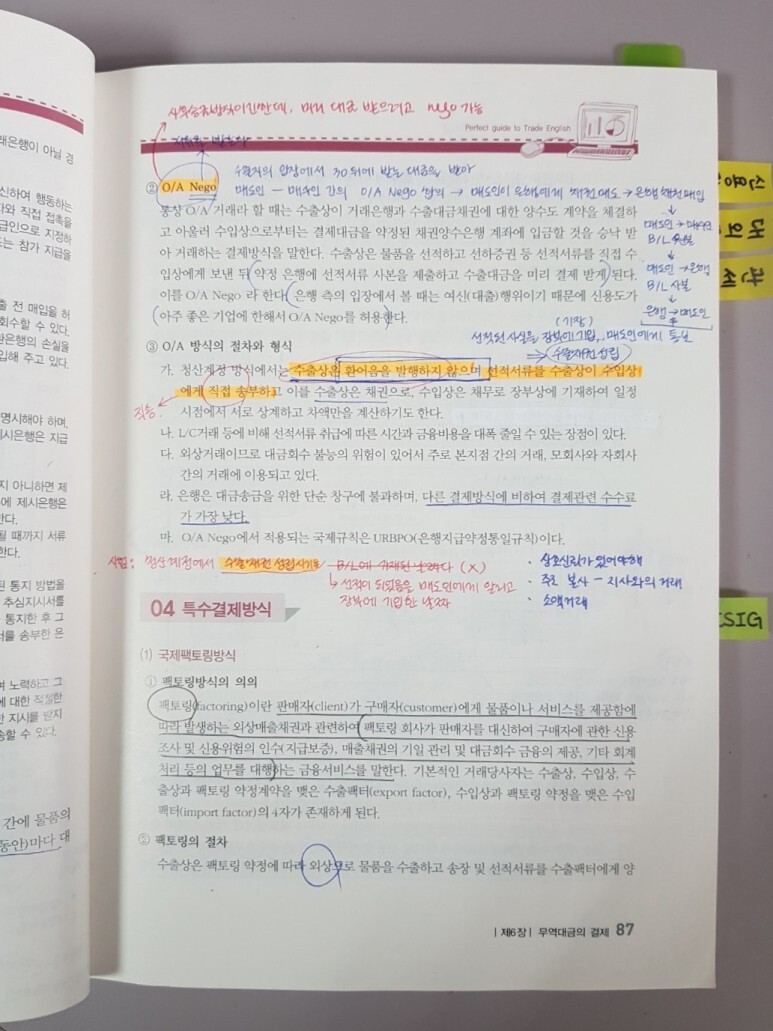 사후송금방식이긴한데, 미리 대금 받으려고 nego 가능
Perfect guide to Trade English
② O/A Nego
통상 O/A 거래라 할 때는 수출상이 거래은행과 수출대금채권에 대한 양수도 계약을 체결하
고 아울러 수입상으로부터는 결제대금을 약정된 채권양수은행 계좌에 입금할 것을 승낙 받
아 거래하는 결제방식을 말한다. 수출상은 물품을 선적하고 선하증권 등 선적서류를 직접 수
입상에게 보낸 뒤 약정 은행에 선적서류 사본을 제출하고 수출대금을 미리 결제 받게 된다.
이를 O/A Nego 라 한다. 은행 측의 입장에서 볼 때는 여신(대출)행위이기 때문에 신용도가
아주 좋은 기업에 한해서 O/A Nego를 허용한다.
매도인 – 매수인 간의 O/A Nego 합의 → 매도인이 은행에게 채권매도 → 은행 채권매입
B/L 원본
매도인 → 은행
B/L 사본
은행 → 매도인
(기장)
수출채권 성립
③ O/A 방식의 절차와 형식
가. 청산계정 방식에서는 수출상은 환어음을 발행하지 않으며 선적서류를 수출상이 수입상
에게 직접 송부하고 이를 수출상은 채권으로, 수입상은 채무로 장부상에 기재하여 일정
시점에서 서로 상계하고 차액만을 계산하기도 한다.
직송
나. L/C거래 등에 비해 선적서류 취급에 따른 시간과 금융비용을 대폭 줄일 수 있는 장점이 있다.
다. 외상거래이므로 대금회수 불능의 위험이 있어서 주로 본지점 간의 거래, 모회사와 자회사
간의 거래에 이용되고 있다.
라. 은행은 대금송금을 위한 단순 창구에 불과하며, 다른 결제방식에 비하여 결제관련 수수료
가 가장 낮다.
마. O/A Nego에서 적용되는 국제규칙은 URBPO(은행지급약정통일규칙)이다.
청산계정에서 수출채권 성립시기는 B/L에 기재된 날짜다 (X)
↳ 선적이 되었음을 매도인에게 알리고
장부에 기입한 날짜
· 상호신뢰가 있어야해
· 주로 본사 – 지사와의 거래
· 소액거래
04 특수결제방식
(1) 국제팩토링방식
① 팩토링방식의 의의
팩토링(factoring)이란 판매자(client)가 구매자(customer)에게 물품이나 서비스를 제공함에
따라 발생하는 외상매출채권과 관련하여 팩토링 회사가 판매자를 대신하여 구매자에 관한 신용
조사 및 신용위험의 인수(지급보증), 매출채권의 기일 관리 및 대금회수 금융의 제공, 기타 회계
처리 등의 업무를 대행하는 금융서비스를 말한다. 기본적인 거래당사자는 수출상, 수입상, 수
출상과 팩토링 약정계약을 맺은 수출팩터(export factor), 수입상과 팩토링 약정을 맺은 수입
팩터(import factor)의 4자가 존재하게 된다.
② 팩토링의 절차
수출상은 팩토링 약정에 따라 외상으로 물품을 수출하고 송장 및 선적서류를 수출팩터에게 양
| 제6장 | 무역대금의 결제 87